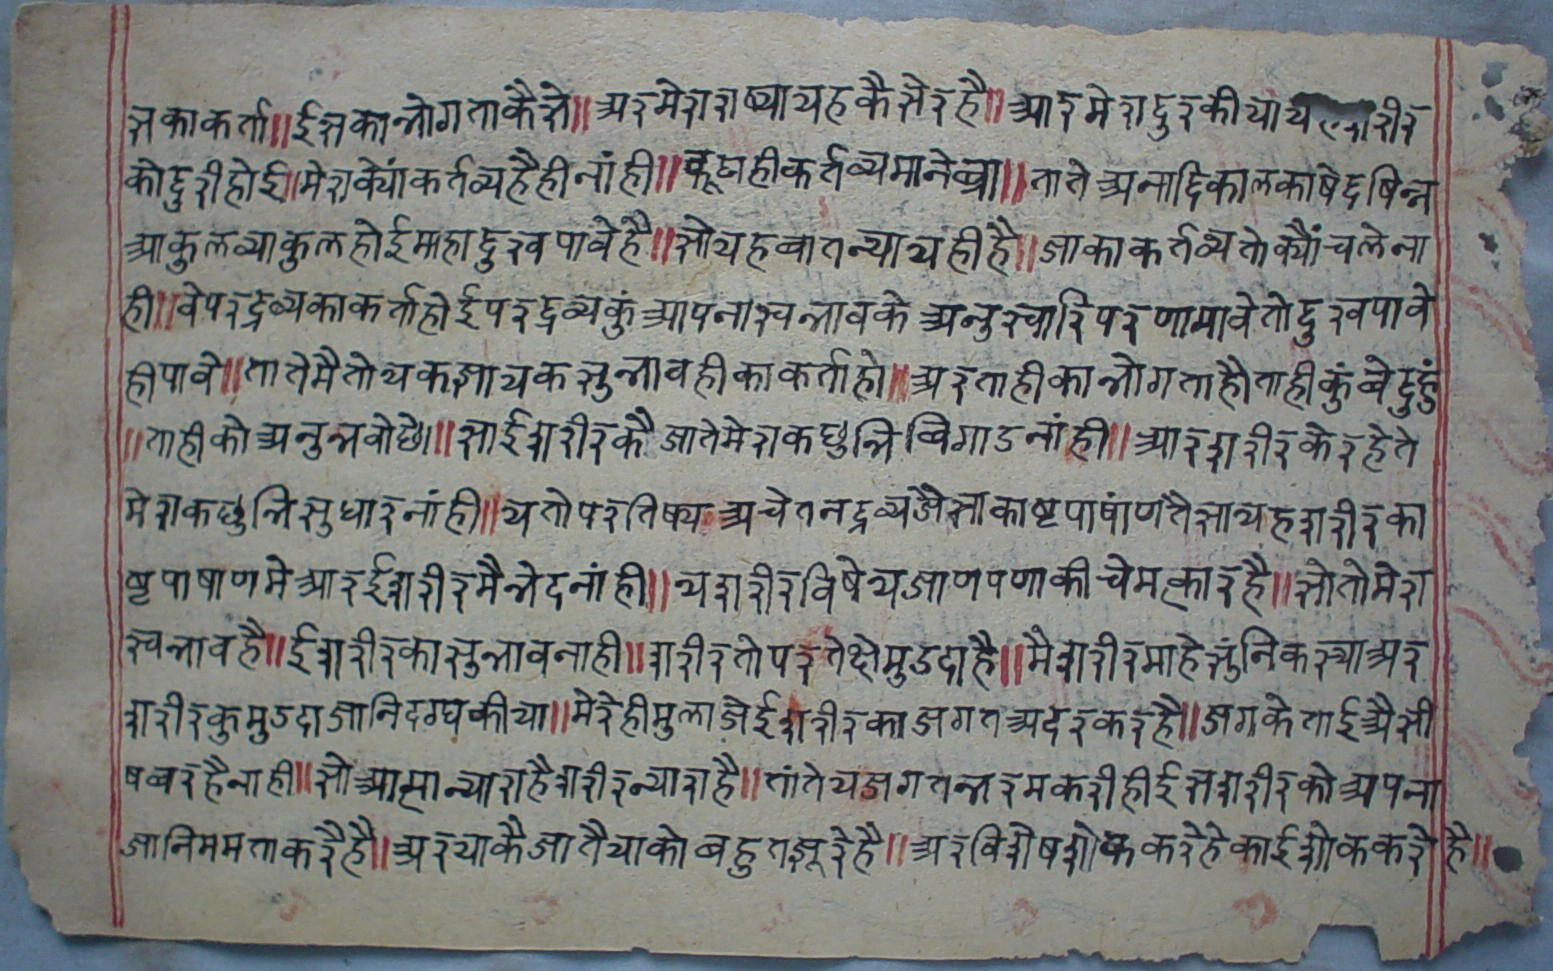 स का कर्ता॥ ईस का भोगता कैसे॥ अर मेरा राष्या यह कैसे रहै॥ आर मेरा दुर कीया य शरीर
को दुरी होई॥ मेरा क्योंं कर्तव्य है ही नांही॥ झूठा ही कर्तव्य माने ब्रा॥ ताते अनादि काल का षेद षिन्न
आकुल व्याकुल होई माहा दुख पावे है॥ सो यह बात न्याय ही है॥ जा का कर्तव्य तो क्यौं चले ना
ही॥ वे पर द्रव्य का कर्ता होई पर द्रव्य कुं आपना स्वभाव के अनुस्वारि परणामावे तो दुख पावे
ही पावे॥ ताते मै तो य क ज्ञायक सुभाव ही का कर्ता हो॥ अर ताही का भोगता हौ ताही कुं वेदु हुं
॥ ताही को अनुभवो छो॥ सा ई शरीर कै जाते मेरा कछु भि बिगाड नांही॥ आर शरीर के रहे ते
मेरा कछु भि सुधार नांही॥ य तो परतिष्य अचेतन द्रव्य जैसा काष्ट पाषांण तैसा यह शरीर का
ष्ट पाषाण मे आर ई शरीर मै भेद नांही॥ य शरीर विषे य जाणपणा की चेमत्कार है॥ सो तो मेरा
स्वभाव है॥ ई शरीर का सुभाव नाही॥ शरीर तो परतेक्षे मुडदा है॥ मै शरीर माहे सुं निकस्या अर
शरीर कु मुडदा जानि दग्ध कीया॥ मेरे ही मुलाजे ई शरीर का जगत अदर कर है॥ जग के ताई अैसी
षबर है नाही॥ सो आत्मा न्यारा है शरीर न्यारा है॥ तांते य जगत भरम करी ही ईस शरीर को अपना
जानि ममता करै है॥ अर या कै जातै या को बहुत झूरे है॥ अर विशेष शोक करे हे काई शोक करे है॥